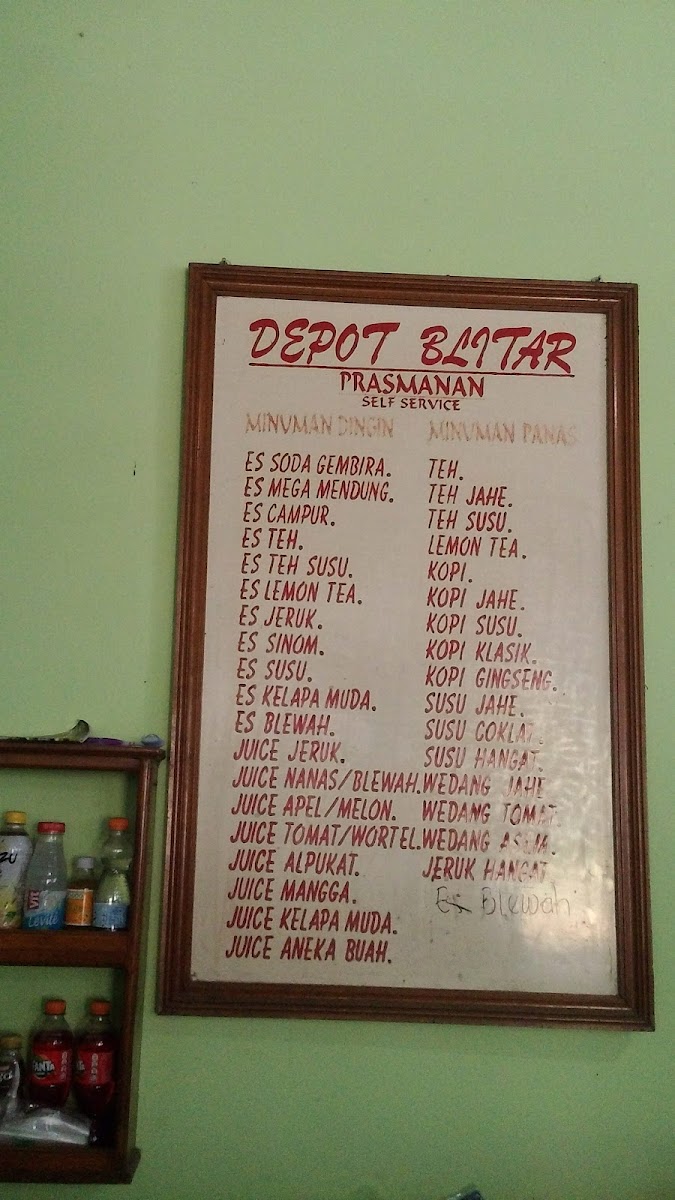 DEPOT BLITAR
PRASMANAN
SELF SERVICE
MINUMAN DINGIN
ES SODA GEMBIRA.
ES MEGA MENDUNG.
ES CAMPUR.
ES TEH.
ES TEH SUSU.
ES LEMON TEA.
ES JERUK.
ES SINOM.
ES SUSU.
ES KELAPA MUDA.
ES BLEWAH.
JUICE JERUK.
JUICE NANAS/BLEWAH.
JUICE APEL/MELON.
JUICE TOMAT/WORTEL.
JUICE ALPUKAT.
JUICE MANGGA.
JUICE KELAPA MUDA.
JUICE ANEKA BUAH.
MINUMAN PANAS
TEH.
TEH JAHE.
TEH SUSU.
LEMON TEA.
KOPI.
KOPI JAHE.
KOPI SUSU.
KOPI KLASIK.
KOPI GINGSENG.
SUSU JAHE.
SUSU COKLAT.
SUSU HANGAT.
WEDANG JAHE
WEDANG TOMAT.
WEDANG
JERUK HANGAT
Es Blewah
FANTA